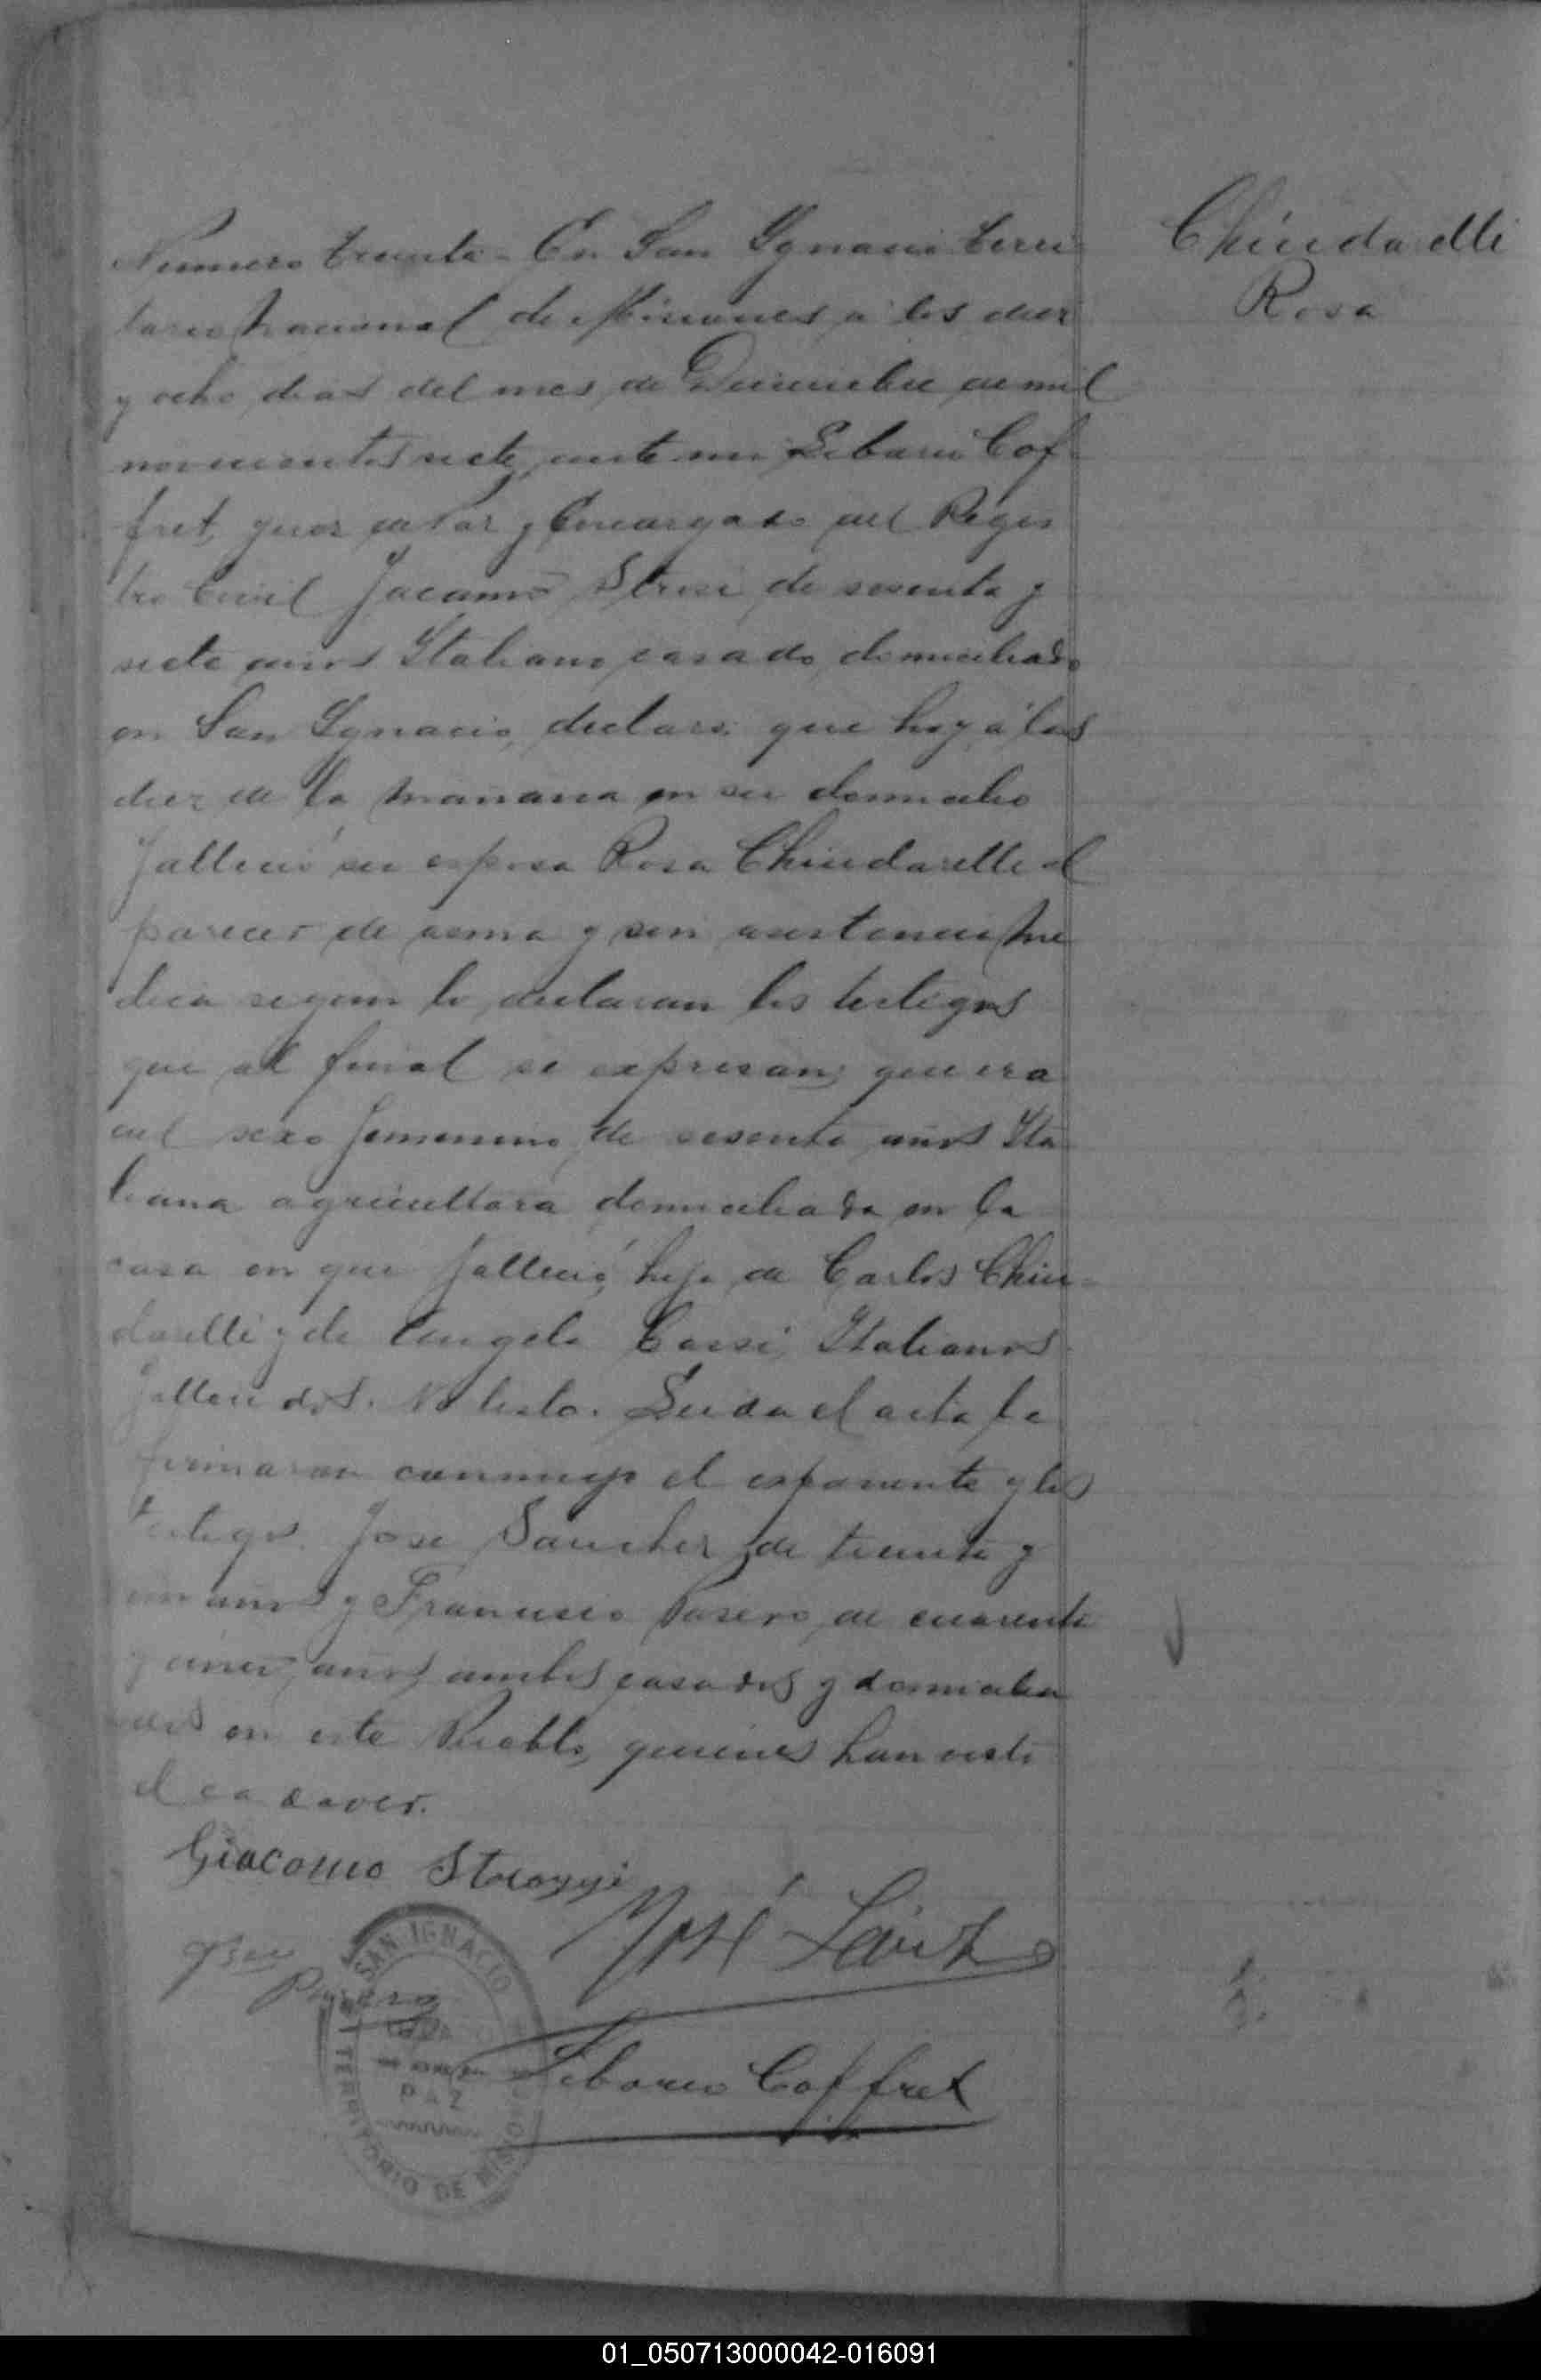 Chiudarelli
Rosa
Numero treinta - En San Ygnacio Terri
torio Nacional de Misiones a los diez
y ocho dias del mes de Diciembre de mil
novecientos siete, ante mi Liborio Cof
fret, Juez de Paz y Encargado del Regis
tro Civil Jacomo Strosi de sesenta y
siete años Italiano, casado, domiciliado
en San Ygnacio, declaró que hoy á las
diez de la mañana en su domicilio
falleció su esposa Rosa Chiudarelli al
parecer de asma y sin asistencia me
dica segun lo declaran los testigos
que al final se expresan; que era
del sexo femenino, de sesenta años Ita
liana agricultora domiciliada en la
casa en que falleció, hija de Carlos Chiu-
darelli y de Angela Corsi, Italianos
fallecidos. No testo. Leida el acta la
firmaron conmigo el exponente y los
testigos. Jose Sanchez de treinta y
un años y Francisco Pasero, de cuarenta
y cinco años, ambos casados y domicilia
dos en este Pueblo, quienes han visto
el cadaver.
Giacomo Strozzi
José
Liborio Coffret
SAN IGNACIO
PAZ
TERRITORIO DE MISIONES
01_050713000042-016091